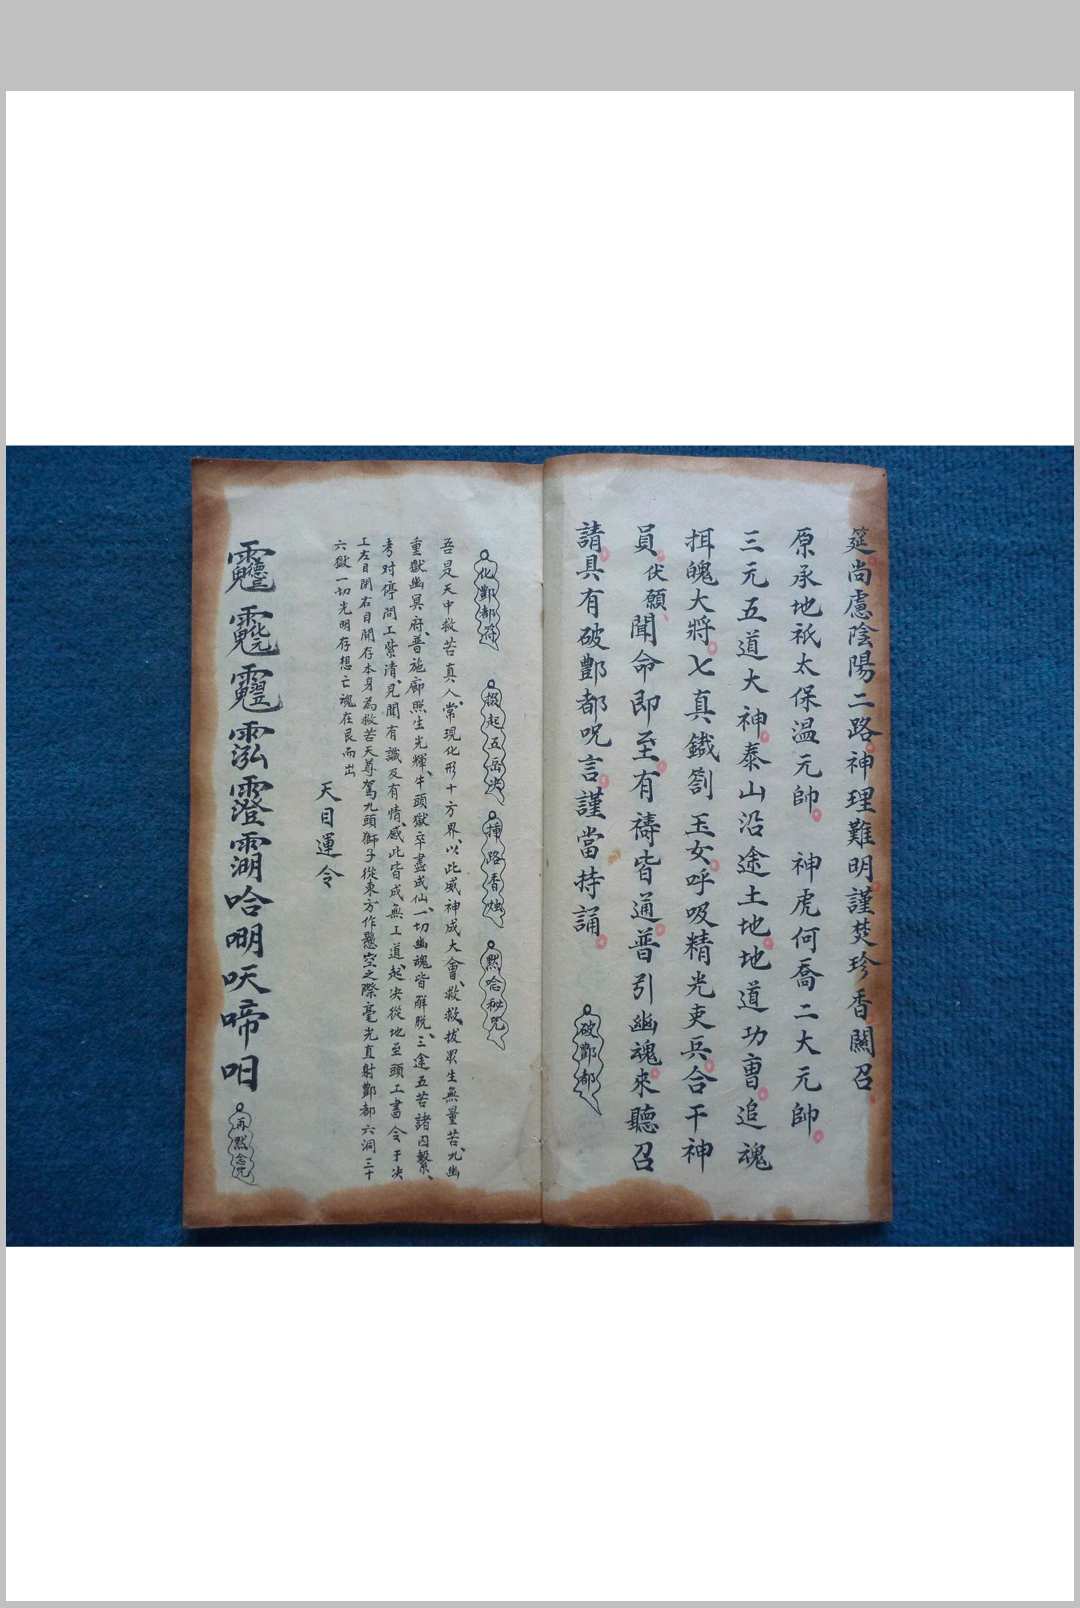 筵尚慮陰陽二路神理難明謹焚珍香關召
原承地祇太保溫元帥 神虎何喬二大元帥
三元五道大神泰山沿途土地地道功曹追魂
揖魄大將七真鐵劄玉女呼吸精光吏兵合干神
員伏願聞命即至有禱皆通普引幽魂來聽召
請具有破酆都呪言謹當持誦
破酆都
化酆都符
掇起五岳决
揷路香燭
黙念秘咒
吾是天中救苦真人常現化形十方界以此威神成大會救救拔眾生無量苦九幽
重獄幽冥府普施廓照生光輝牛頭獄卒盡成仙一切幽魂皆解脱三途五苦諸囚繫
考对停問工紫清見聞有識及有情感此皆成無工道起决從地至頭工書令于决
工左目閉右目開存本身為救苦天尊駕九頭獅子從東方作懸空之際毫光直射酆都六洞三十
六獄一切光明存想亡魂在艮而出
天目運令
哈 㗅 呋 啼 呬
再黙念咒